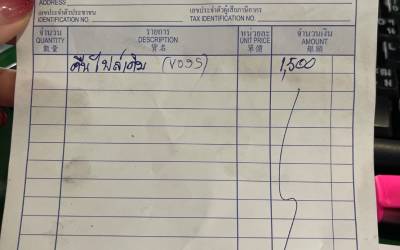 ADDRESS
เลขประจำตัวประชาชน เลขประจำตัวผู้เสียภาษีอากร
IDENTIFICATION NO. TAX IDENTIFICATION NO.
จำนวน รายการ หน่วยละ จำนวนเงิน
QUANTITY DESCRIPTION UNIT PRICE AMOUNT
數量 貨名 單價 銀額
คืนไฟล์เดิม (VOSS) 1,500